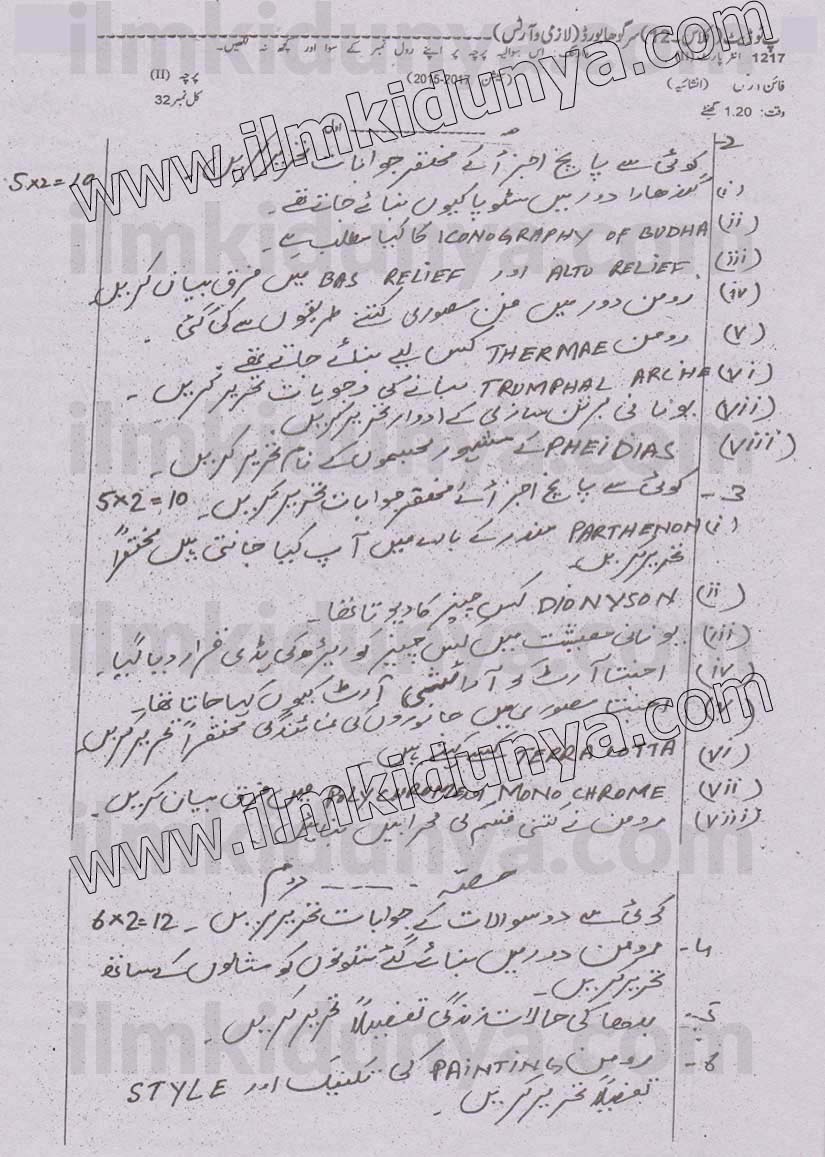 سرگودھا بورڈ (لازمی و آرٹس)
1217 نوٹ: اس سوالیہ پرچہ پر اپنے رول نمبر کے سوا اور کچھ نہ لکھیں۔
(انشائیہ) (سیشن 2015-2017) پرچہ (II)
وقت: 1.20 گھنٹے کل نمبر 32
حصہ اول
2- کوئی سے پانچ اجزائے مختصر جوابات تحریر کریں۔ 5x2=10
(i) گندھارا دور میں سٹوپا کیوں بنائے جاتے تھے۔
(ii) ICONOGRAPHY OF BUDHA کا کیا مطلب ہے۔
(iii) ALTO RELIEF اور BAS RELIEF میں فرق بیان کریں۔
(iv) رومن دور میں فن مصوری کتنے طریقوں سے کی گئی۔
(v) رومن THERMAE کس لیے بنائے جاتے تھے۔
(vi) TRUMPHAL ARCHE بنانے کی وجوہات تحریر کریں۔
(vii) یونانی برتن سازی کے ادوار تحریر کریں۔
(viii) PHEIDIAS کے مشہور مجسموں کے نام تحریر کریں۔
3- کوئی سے پانچ اجزائے مختصر جوابات تحریر کریں۔ 5x2=10
(i) PARTHENON مندر کے بارے میں آپ کیا جانتی ہیں مختصراً
تحریر کریں۔
(ii) DIONYSON کس چیز کا دیوتا تھا۔
(iii) یونانی معیشت میں کس چیز کو ریڑھ کی ہڈی قرار دیا گیا۔
(iv) اجنتا آرٹ کو آرائشی آرٹ کیوں کہا جاتا تھا۔
(v) اجنتا مصوری میں جانوروں کی نمائندگی مختصراً تحریر کریں۔
(vi) TERRA COTTA کسے کہتے ہیں۔
(vii) MONO CHROME POLYCHROME میں فرق بیان کریں۔
(viii) رومن نے کتنی قسم کی محرابیں
حصہ دوم
کوئی سے دو سوالات کے جوابات تحریر کریں۔ 6x2=12
4- رومن دور میں بنائے گئے ستونوں کو مثالوں کے ساتھ
تحریر کریں۔
5- بدھا کی حالات زندگی تفصیلاً تحریر کریں۔
6- رومن PAINTING کی تکنیک اور STYLE
تفصیلاً تحریر کریں۔
www.ilmkidunya.com
www.ilmkidunya.com
ilmkidunya.com
ilmkidunya.com
ilmkidunya.com
ilmkidunya.com
ilmkidunya.com